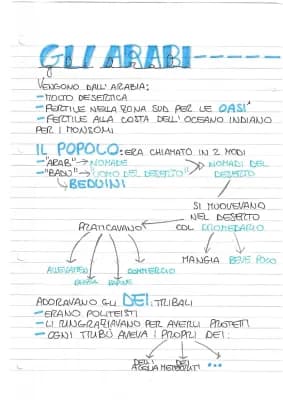 GLI ARABI
VENGONO DALL'ARABIA:
- MOLTO DESERTICA
- FERTILE NELLA ZONA SUD PER LE OASI
- FERTILE ALLA COSTA DELL'OCEANO INDIANO
PER I MONSONI
IL POPOLO: ERA CHIAMATO IN 2 MODI
- "ARAB" → NOMADE
NOMADI DEL
DESERTO
- "BADW" → "UOMO DEL DESERTO"
↳ BEDUINI
SI MUOVEVANO
NEL DESERTO
COL DROMEDARIO
PRATICAVANO
MANGIA BEVE POCO
ALLEVAMEN COMMERCIO
RAPINE
ADORAVANO GLI DEI TRIBALI
- ERANO POLITEISTI
- LI RINGRAZIAVANO PER AVERLI PROTETTI
- OGNI TRIBÙ AVEVA I PROPRI DEI:
DELL' DEI
ACQUA METEORITI ...